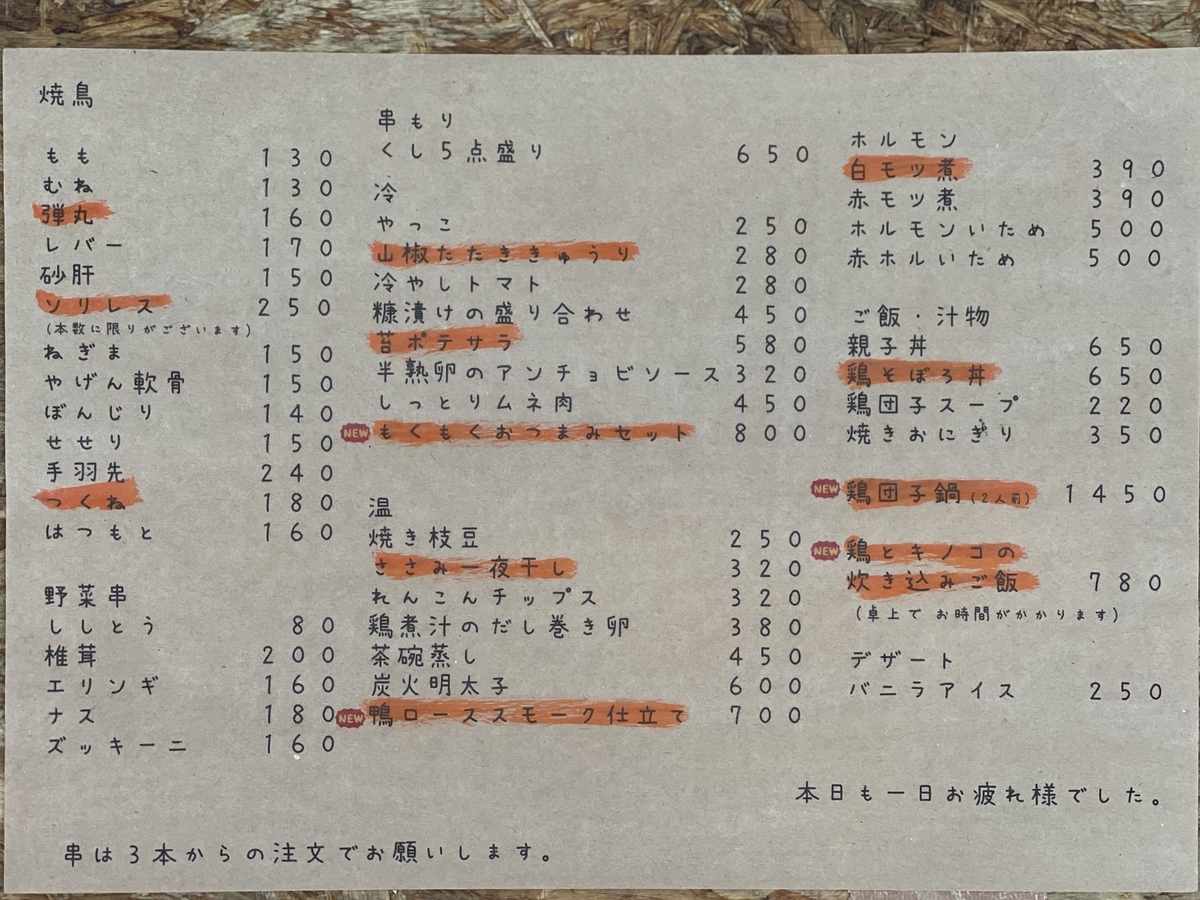 焼鳥
もも 130
むね 130
弾丸 160
レバー 170
砂肝 150
ソリレス 250
(本数に限りがございます)
ねぎま 150
やげん軟骨 150
ぼんじり 140
せせり 150
手羽先 240
つくね 180
はつもと 160
野菜串
ししとう 80
椎茸 200
エリンギ 160
ナス 180
ズッキーニ 160
串は3本からの注文でお願いします。
串もり
くし5点盛り 650
冷
やっこ 250
山椒たたききゅうり 280
冷やしトマト 280
糠漬けの盛り合わせ 450
苔ポテサラ 580
半熟卵のアンチョビソース 320
しっとりムネ肉 450
NEW もくもくおつまみセット 800
温
焼き枝豆 250
ささみ一夜干し 320
れんこんチップス 320
鶏煮汁のだし巻き卵 380
茶碗蒸し 450
炭火明太子 600
NEW 鴨ローススモーク仕立て 700
ホルモン
白モツ煮 390
赤モツ煮 390
ホルモンいため 500
赤ホルいため 500
ご飯・汁物
親子丼 650
鶏そぼろ丼 650
鶏団子スープ 220
焼きおにぎり 350
NEW 鶏団子鍋(2人前) 1450
NEW 鶏とキノコの
炊き込みご飯 780
(卓上で お時間がかかります)
デザート
バニラアイス 250
本日も一日お疲れ様でした。